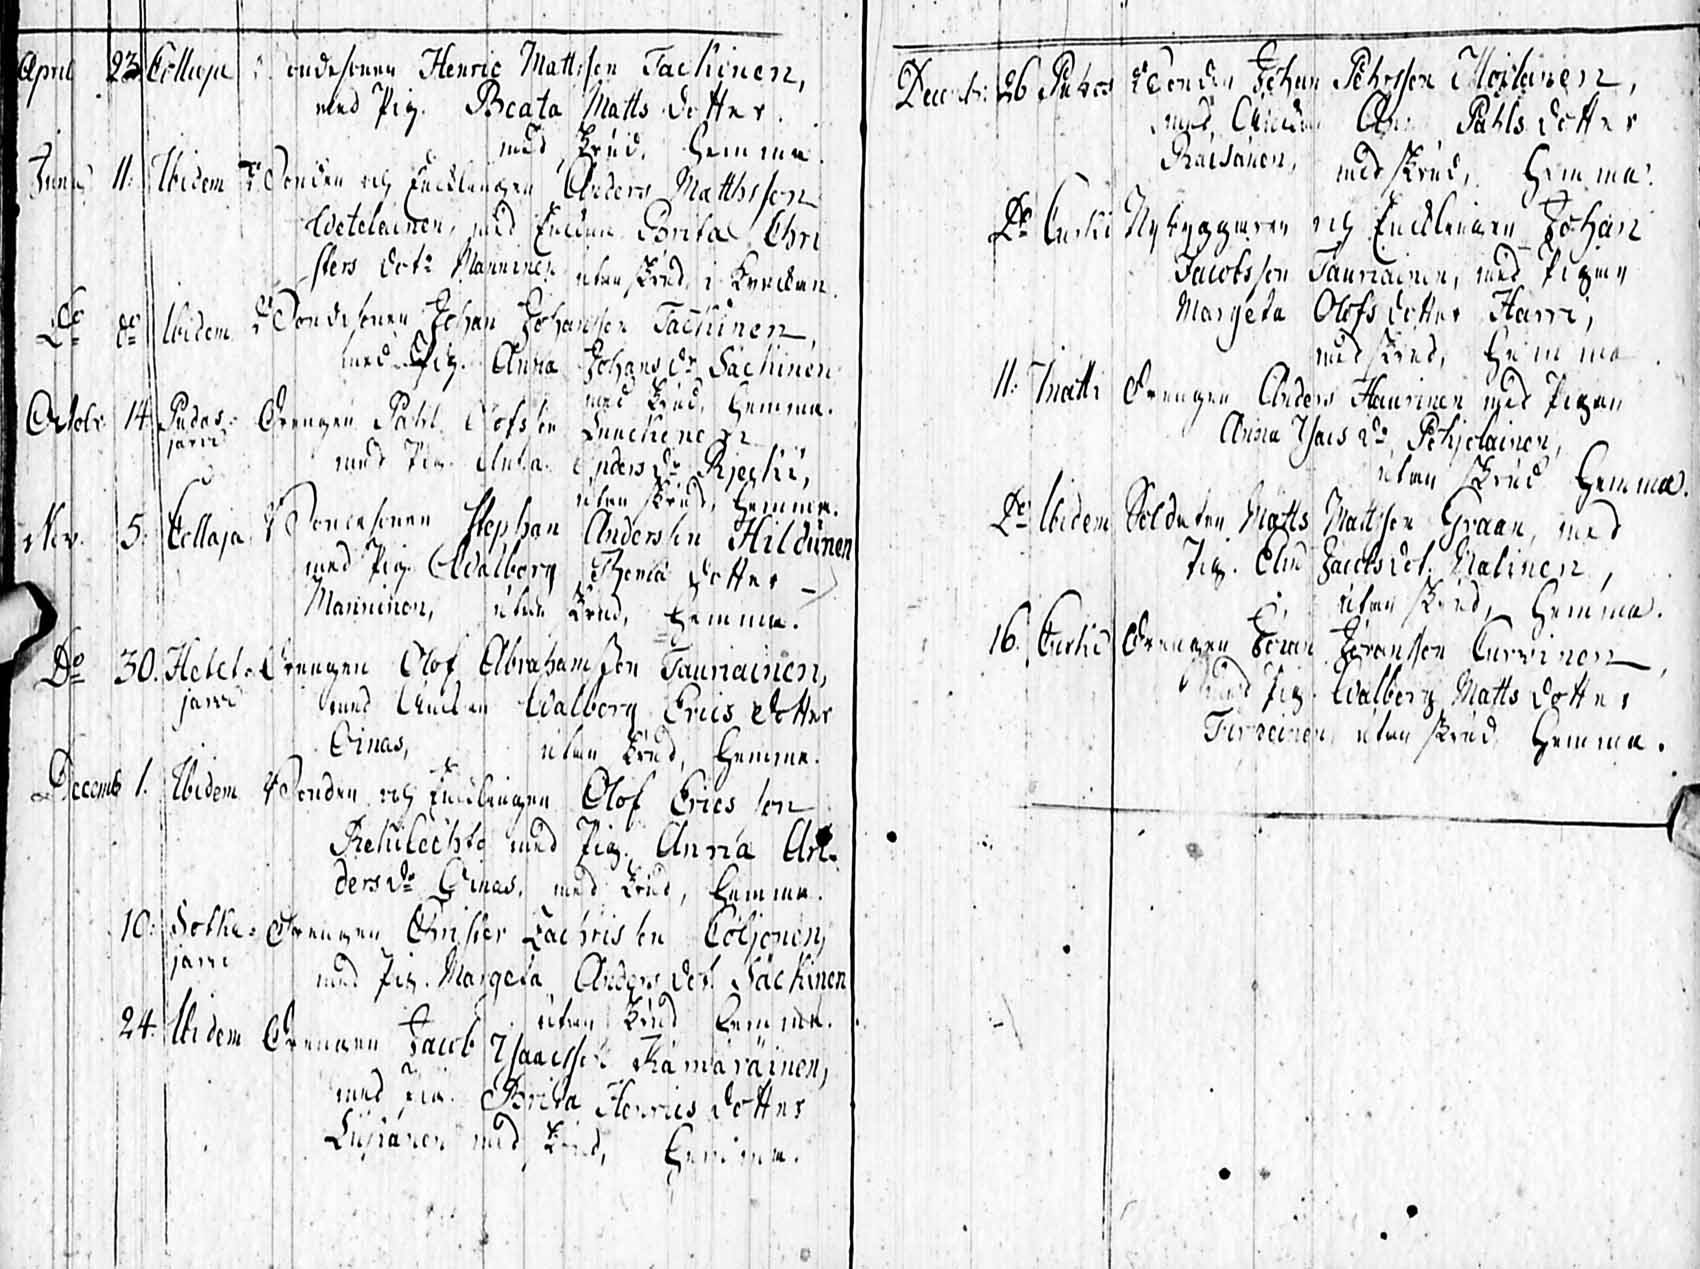 April 23 Collaja Bondesonen Henric Mattsson Tackinen,
med Pig. Beata Matts dotter.
med Krud. Hemma.
Junii 11. Ibidem Bonden och Encklingen Anders Matthsson
Wetelainen, med Enckan Brita Chri
sters dotr Manninen utan Krud, i Kyrckan.
Do do Ibidem Bondesonen Johan Johansson Tackinen,
med Pig. Anna Johans dr Säckinen
med Krud, Hemma.
Octobr 14 Pudas= Drengen Påhl Olofsson
jarvi med Pig. Anna Anders dr
utan Krud, Hemma.
Nov. 5. Collaja Bondesonen Stephan Andersson Hildunen
med Pig. Walborg Thoma dotter
Manninen, utan Krud, Hemma.
Do 30. Drengen Olof Abrahamsson Tauriainen,
jarvi med Enckan Walborg Erics dotter
Cinas, utan Krud, Hemma.
Decemb 1. Ibidem Bonden och Encklingen Olof Ericsson
med Pig. Anna An=
ders dr Cinas, med Krud, Hemma.
10. Sotka= Drengen Christer Zachrisson Cöljonen,
jarvi med Pig. Margeta Anders dot. Säckinen
utan Krud Hemma.
24. Ibidem Drengen Jacob Isaacsson Kämäräinen,
med Pig. Brita Henrics dotter
med Krud, Hemma.
Decembr. 26 Bonden Johan Pehrsson Moilanen,
med Enckan Påhls dotter
Räisänen, med Krud, Hemma.
Do Curki Nybyggaren och Encklingen Johan
Jacobsson Tauriainen, med Pigan
Margeta Olofs dotter Harri,
med Krud, Hemma.
11. Drengen Anders Haurinen med Pigan
Anna Isacs dr Pohjolainen,
utan Krud Hemma.
Do Ibidem Soldaten Matts Mattsson Graan, med
Pig. Elin Jacobs dot. Malinen,
utan Krud, Hemma.
16. Curki Drengen Göran Göransson Curvinen,
med Pig. Walborg Matts dotter
utan Krud, Hemma.